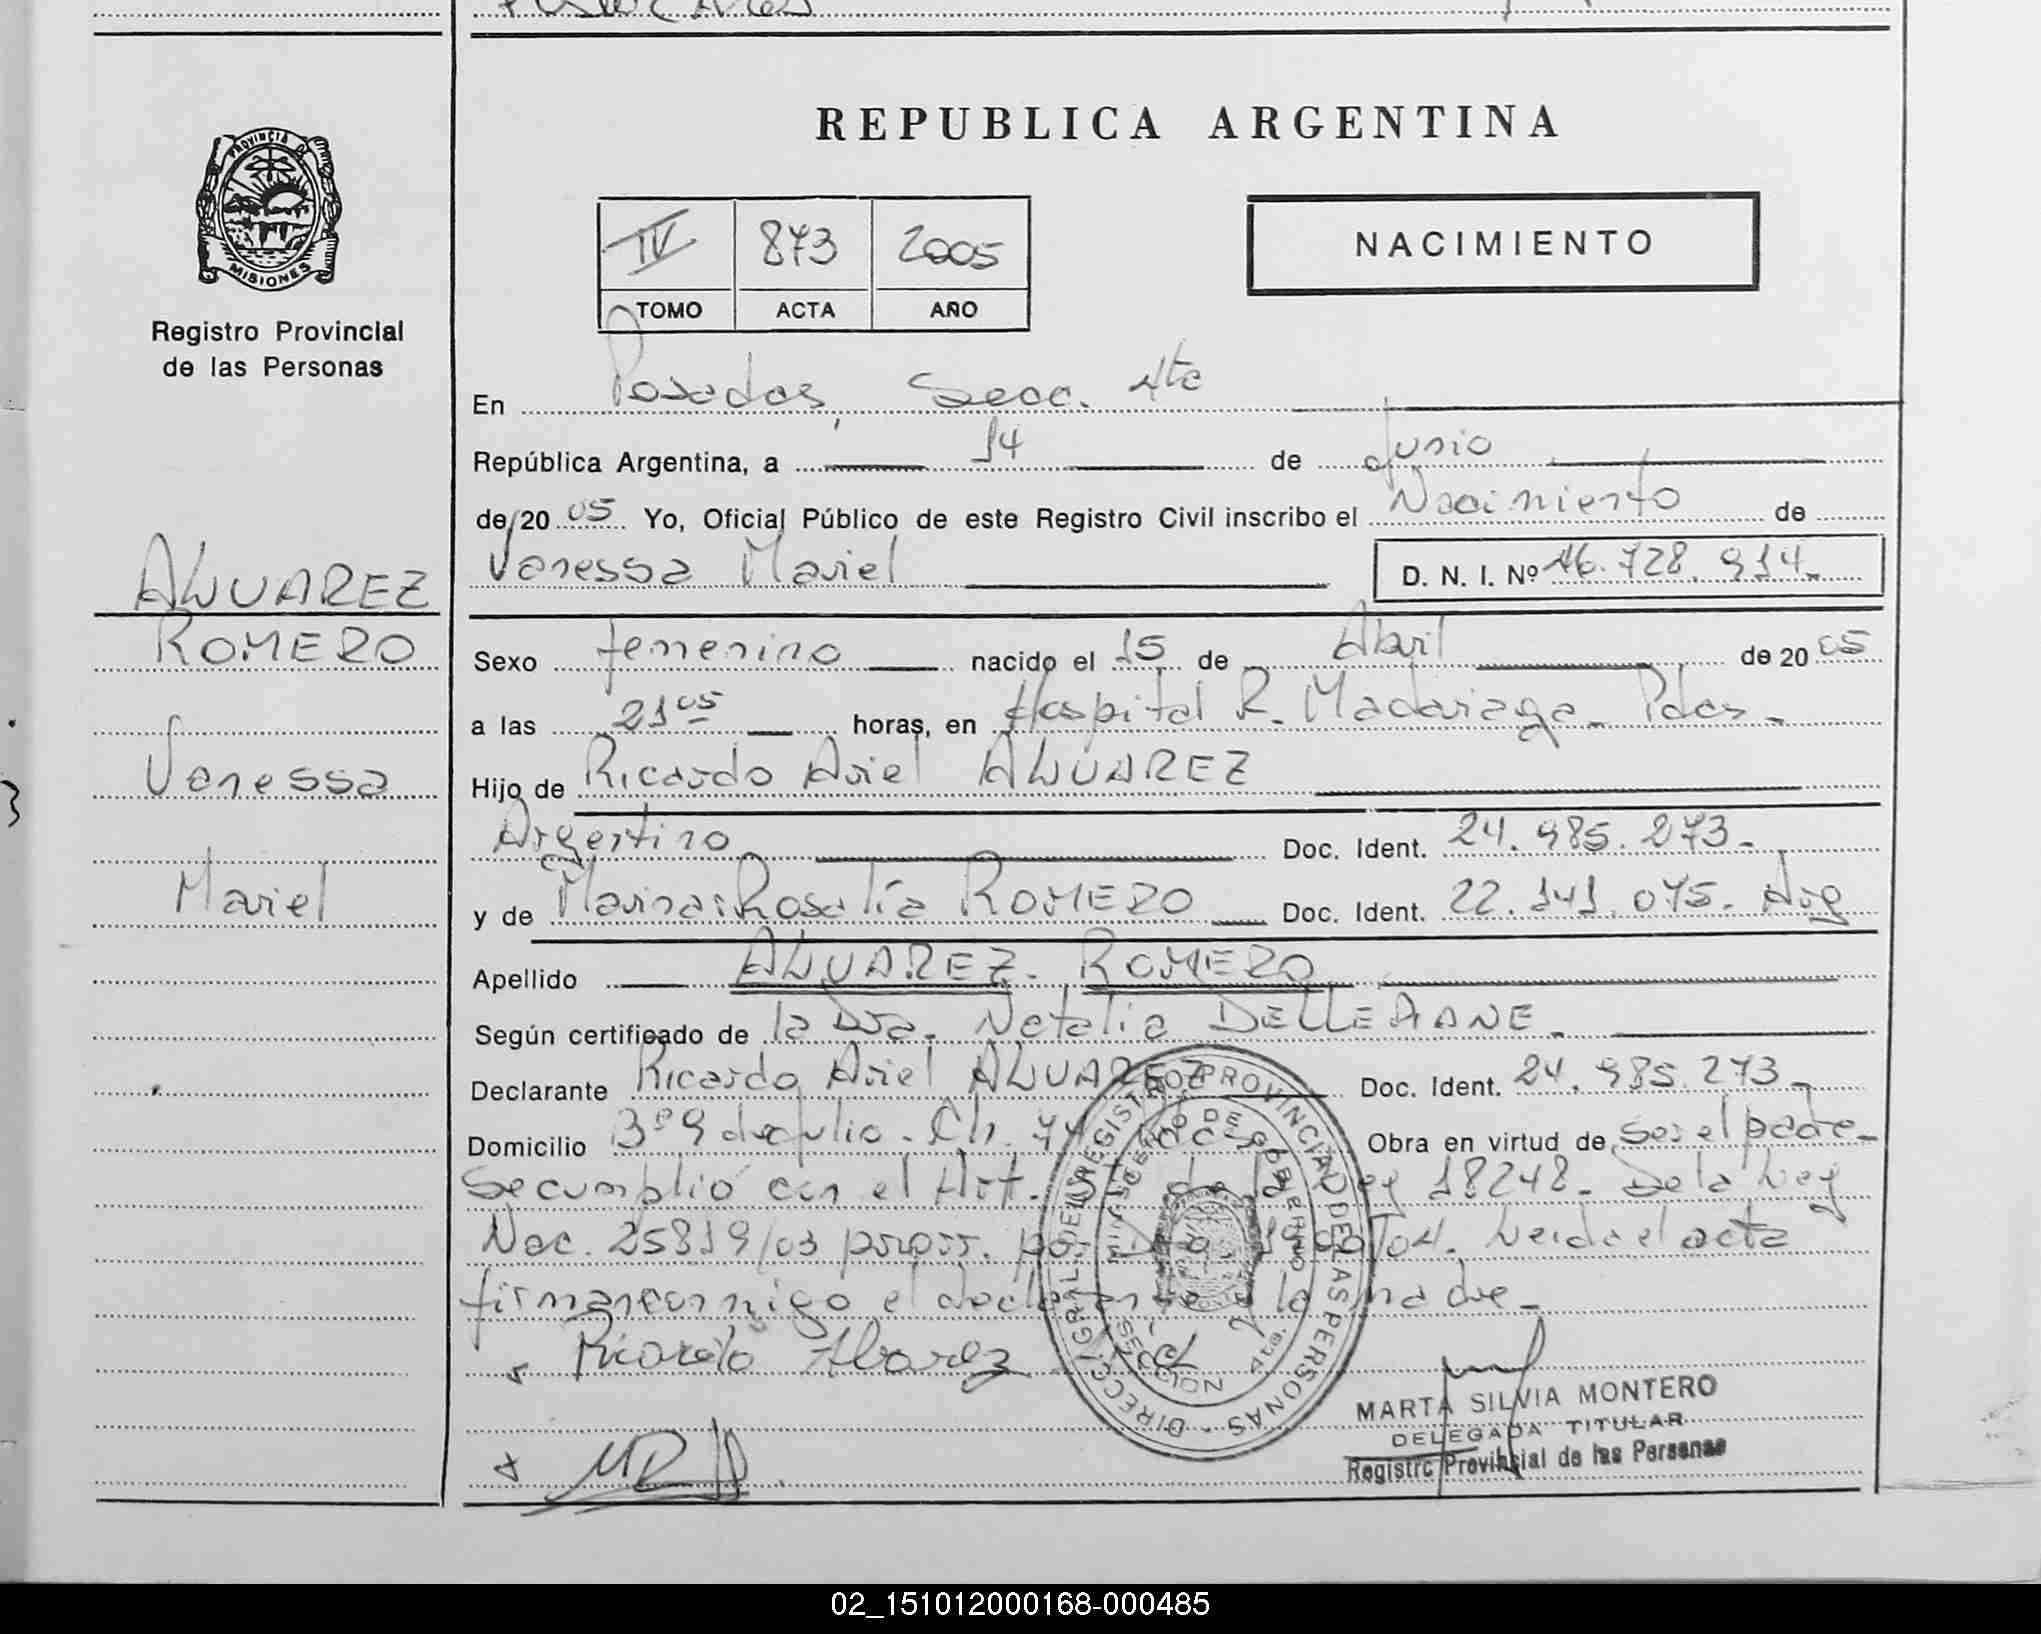 REPUBLICA ARGENTINA
PROVINCIA DE MISIONES
Registro Provincial
de las Personas
IV 873 2005
TOMO ACTA AÑO
NACIMIENTO
En Posadas, Secc. 4ta
República Argentina, a 14 de Junio
de 20 05 Yo, Oficial Público de este Registro Civil inscribo el Nacimiento de
Vanessa Mariel D. N. I. Nº 46.728.914.
ALVAREZ
ROMERO
Vanessa
Mariel
Sexo femenino nacido el 15 de Abril de 20 05
a las 21 05 horas, en Hospital R. Madariaga - Pdas -
Hijo de Ricardo Ariel ALVAREZ
Argentino Doc. Ident. 24.985.273.-
y de Marina Rosalía ROMERO Doc. Ident. 22.141.075. Arg
Apellido ALVAREZ - ROMERO
Según certificado de la Dra. Natalia DELLEPIANE -
Declarante Ricardo Ariel ALVAREZ Doc. Ident. 24.985.273 -
Domicilio B° 9 de Julio - Ch. Obra en virtud de ser el padre -
Se cumplió con el Art. de la Ley 18248 - De la Ley
Nac. 25819/03 prorr. Leida el acta
firman conmigo el declarante y la madre -
Ricardo Alvarez
DIRECC. GRAL. DEL REGISTRO PROVINCIAL DE LAS PERSONAS
MINISTERIO DE GOBIERNO
MARTA SILVIA MONTERO
DELEGADA TITULAR
Registro Provincial de las Personas
02_151012000168-000485